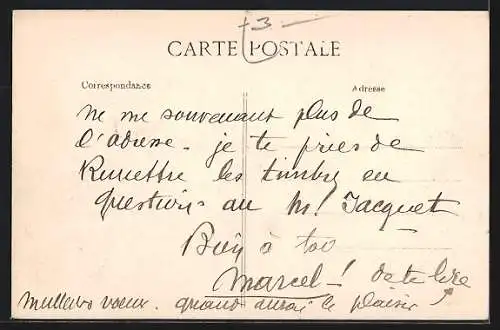 3
CARTE POSTALE
Correspondance
Adresse
ne me souvenant plus de
l'adresse - je te pries de
Remettre les timbres en
questions au M! Jacquet
Bien à toi
Marcel - !
meilleurs voeux. quand aurai le plaisir
de te lire